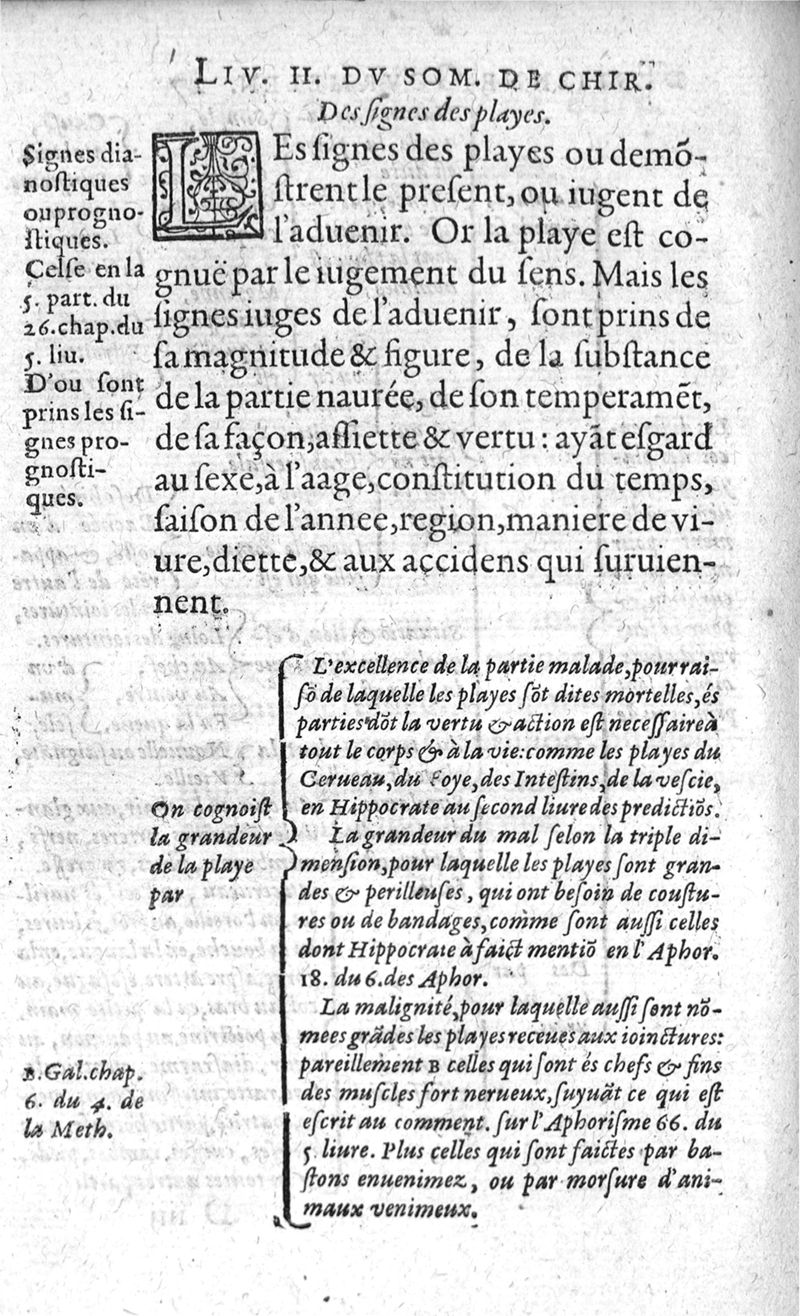 LIV. II. DV SOM. DE CHIR.
Des ſignes des playes.
Signes dia-
noſtiques
ou progno-
ſtiques.
Celſe en la
5. part. du
26. chap. du
5. liu.
D'ou ſont
prins les ſi-
gnes pro-
gnoſti-
ques.
LEs ſignes des playes ou demõ-
ſtrent le preſent, ou iugent de
l'aduenir. Or la playe eſt co-
gnuë par le iugement du ſens. Mais les
ſignes iuges de l'aduenir, ſont prins de
ſa magnitude & figure, de la ſubſtance
de la partie naurée, de ſon temperamẽt,
de ſa façon, aſſiette & vertu: ayãt eſgard
au ſexe, à l'aage, conſtitution du temps,
ſaiſon de l'annee, region, maniere de vi-
ure, diette, & aux accidens qui ſuruien-
nent.
On cognoiſt
la grandeur
de la playe
par
L'excellence de la partie malade, pour rai-
ſõ de laquelle les playes ſõt dites mortelles, és
parties dõt la vertu & action eſt neceſſaire à
tout le corps & à la vie: comme les playes du
Cerueau, du Foye, des Inteſtins, de la veſcie,
en Hippocrate au ſecond liure des predictiõs.
La grandeur du mal ſelon la triple di-
menſion, pour laquelle les playes ſont gran-
des & perilleuſes, qui ont beſoin de couſtu-
res ou de bandages, comme ſont auſſi celles
dont Hippocrate à faict mentiõ en l'Aphor.
18. du 6. des Aphor.
La malignité, pour laquelle auſſi ſont nõ-
mees grãdes les playes receues aux ioinctures:
pareillement B celles qui ſont és chefs & fins
des muſcles fort nerueux, ſuyuãt ce qui eſt
eſcrit au comment. ſur l'Aphoriſme 66. du
5. liure. Plus celles qui ſont faictes par ba-
ſtons enuenimez, ou par morſure d'ani-
maux venimeux.
B. Gal. chap.
6. du 4. de
la Meth.